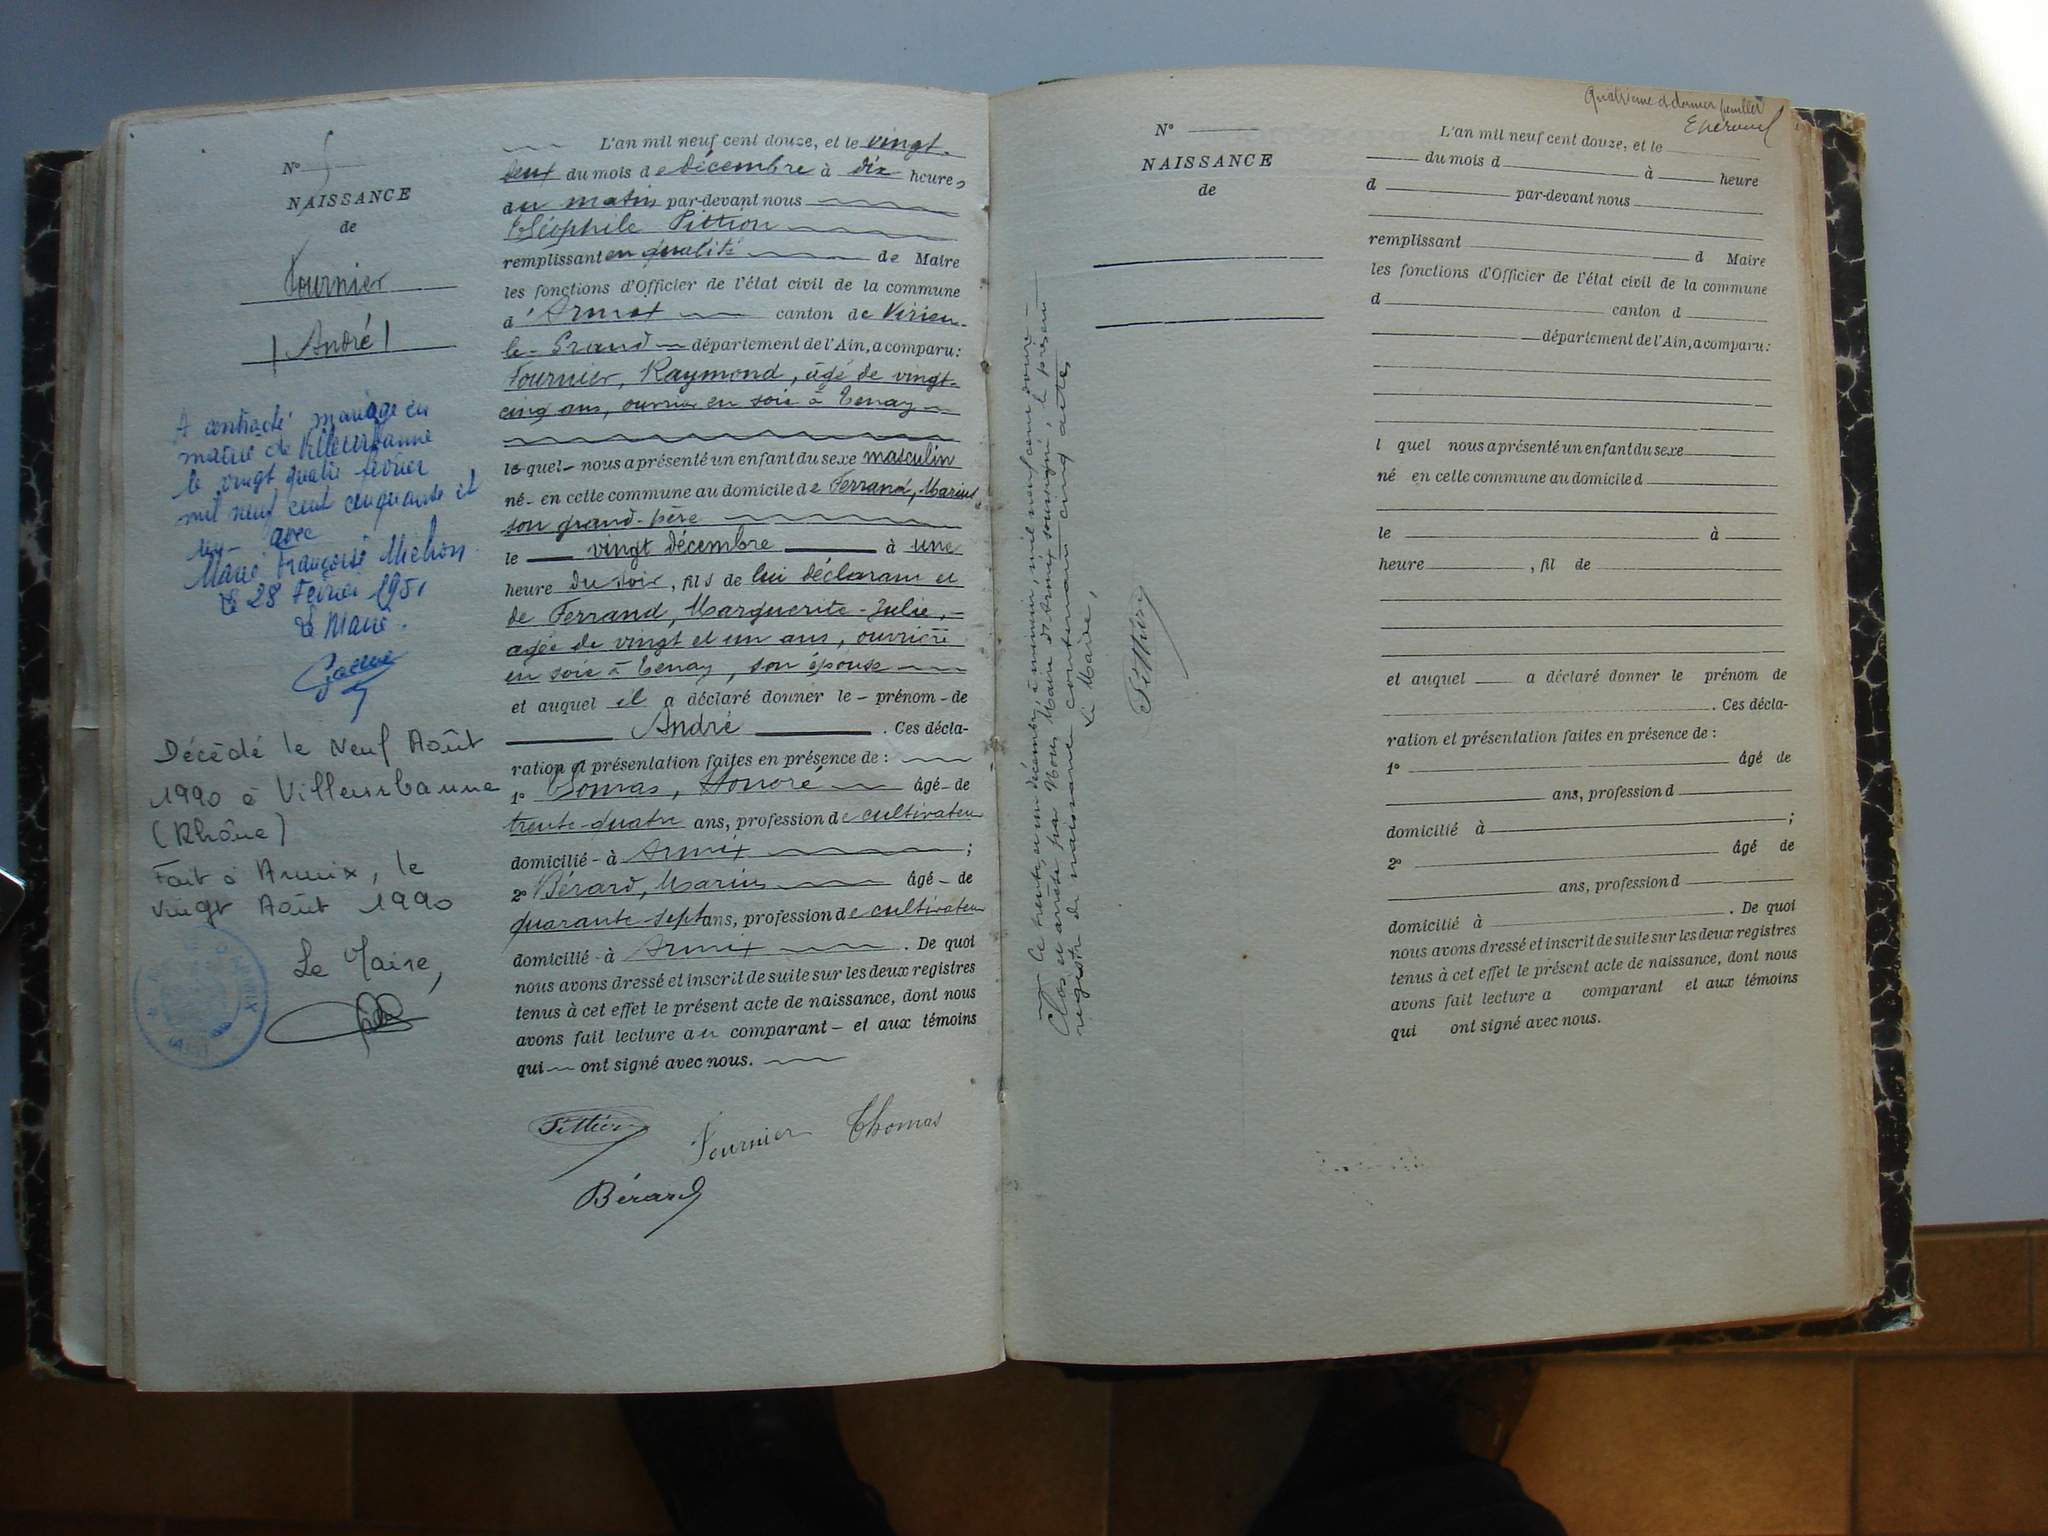 N° 5
NAISSANCE
de
Fournier
André
A contracté mariage en
mairie de Villeurbanne
le vingt quatre février
mil neuf cent cinquante et
un avec
Marie Françoise Michon
Le 28 Février 1951
Le Maire.
Décédé le Neuf Août
1990 à Villeurbanne
(Rhône)
Fait à Armix, le
vingt Août 1990
Le Maire,
L'an mil neuf cent douze, et le vingt-
deux du mois de décembre à dix heures
du matin par-devant nous
Théophile Pittion
remplissant en qualité de Maire
les fonctions d'Officier de l'état civil de la commune
d'Armix canton de Virieu-
le-Grand département de l'Ain, a comparu:
Fournier, Raymond, âgé de vingt-
cinq ans, ouvrier en soie à Tenay
lequel nous a présenté un enfant du sexe masculin
né en cette commune au domicile de Ferrand, Marius
son grand-père
le vingt décembre à une
heure du soir, fils de lui déclarant et
de Ferrand, Marguerite-Julie,
agée de vingt et un ans, ouvrière
en soie à Tenay, son épouse
et auquel il a déclaré donner le prénom de
André. Ces décla-
ration et présentation faites en présence de :
1° Thomas, Honoré âgé de
trente-quatre ans, profession de cultivateur
domicilié à Armix ;
2° Bérard, Marius âgé de
quarante-sept ans, profession de cultivateur
domicilié à Armix. De quoi
nous avons dressé et inscrit de suite sur les deux registres
tenus à cet effet le présent acte de naissance, dont nous
avons fait lecture au comparant et aux témoins
qui ont signé avec nous.
Pittion Fournier Thomas
Bérard
Ce trente et un décembre, à minuit, mil neuf cent douze
Clos et arrêté par Nous Maire d'Armix soussigné, le présent
registre de naissance contenant cinq actes
Le Maire,
Pittion
Quatrième et dernier feuillet
N°
NAISSANCE
de
L'an mil neuf cent douze, et le
du mois d à heure
d par-devant nous
remplissant d Maire
les fonctions d'Officier de l'état civil de la commune
d canton d
département de l'Ain, a comparu:
l quel nous a présenté un enfant du sexe
né en cette commune au domicile d
le à
heure , fil de
et auquel a déclaré donner le prénom de
. Ces décla-
ration et présentation faites en présence de :
1° âgé de
ans, profession d
domicilié à ;
2° âgé de
ans, profession d
domicilié à . De quoi
nous avons dressé et inscrit de suite sur les deux registres
tenus à cet effet le présent acte de naissance, dont nous
avons fait lecture a comparant et aux témoins
qui ont signé avec nous.